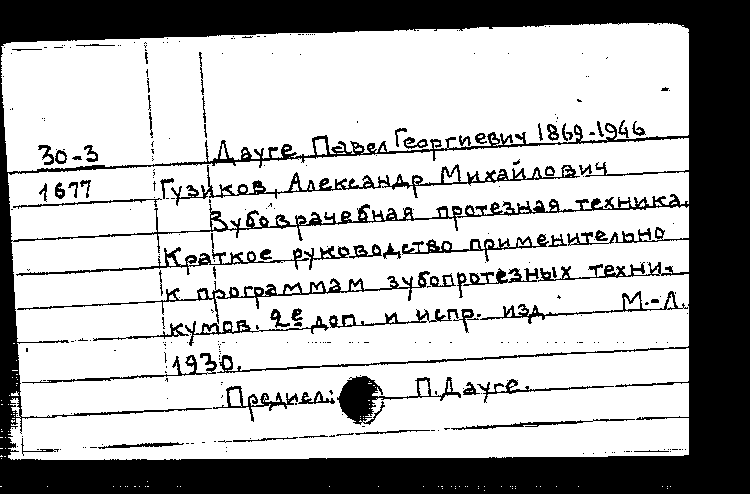 Дауге, Павел Георгиевич 1869-1946
30-3
1677
Гузиков, Александр Михайлович
Зубоврачебная протезная техника.
Краткое руководство применительно
к программам зубопротезных техни-
кумов. 2е доп. и испр. изд. М.-Л.
1930.
Предисл.: П. Дауге.